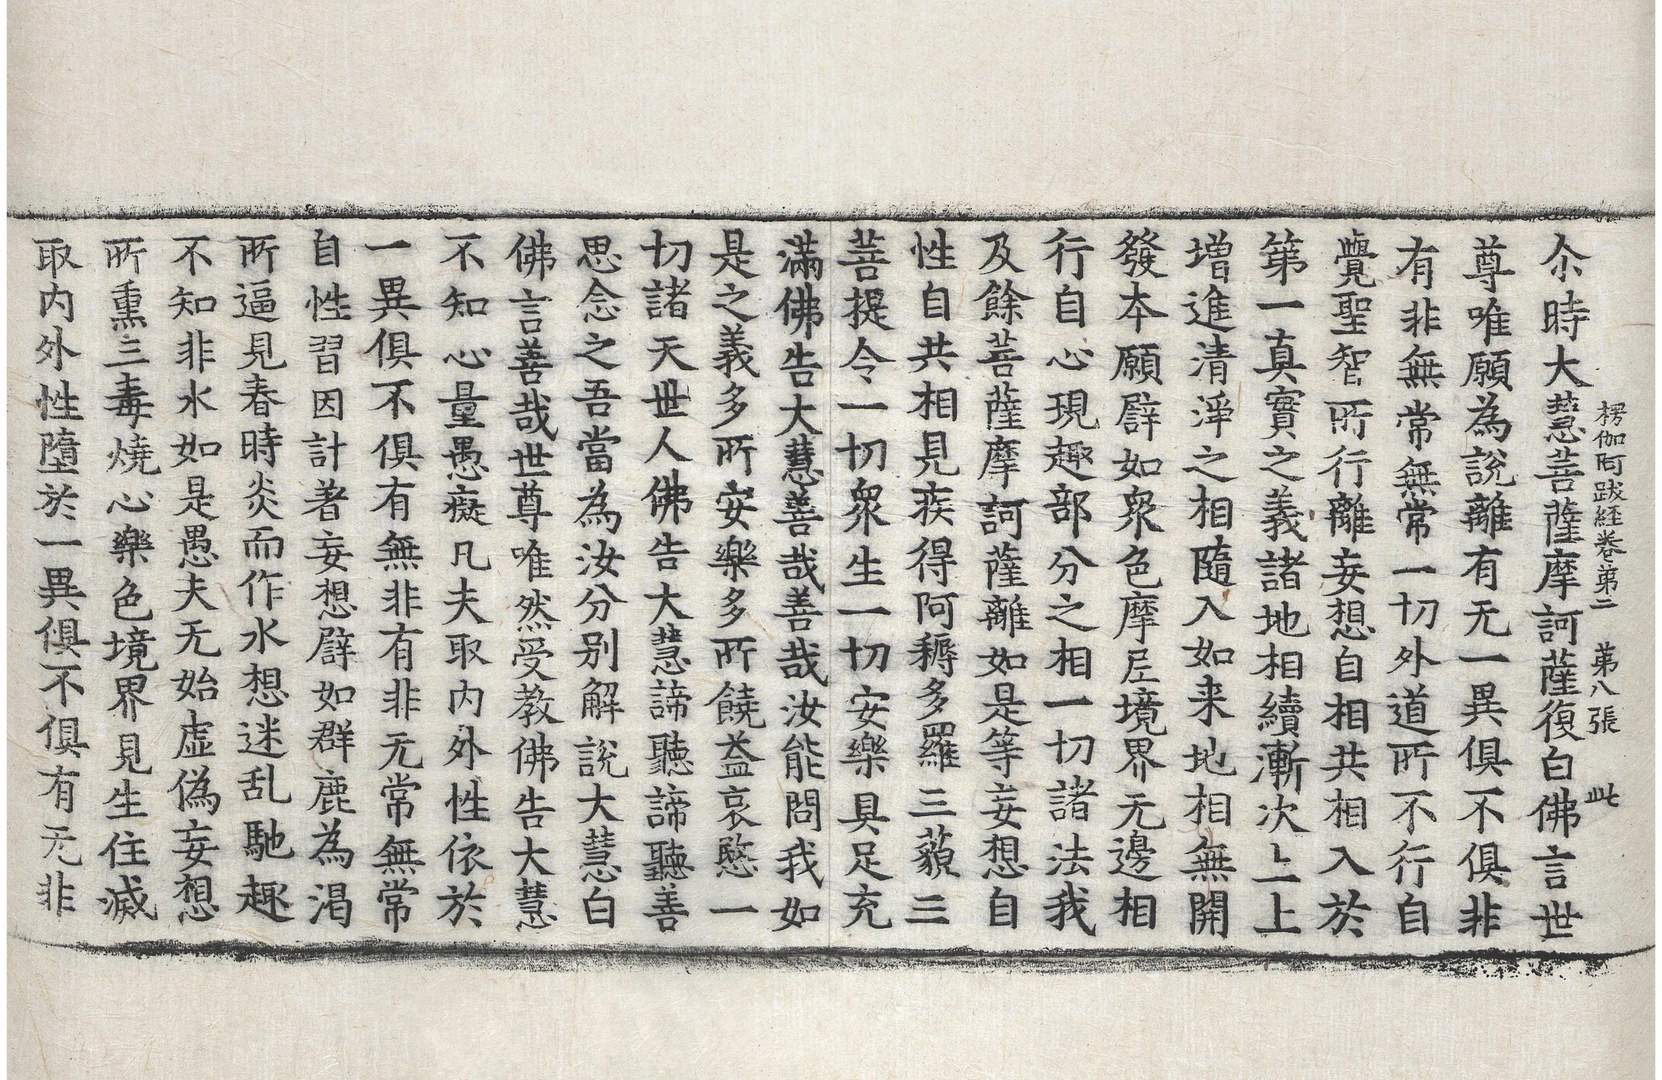 楞伽阿跋経卷第二　第八張　此
尒時大慧菩薩摩訶薩復白佛言世
尊唯願為説離有无一異俱不俱非
有非無常無常一切外道所不行自
覺聖智所行離妄想自相共相入於
第一真實之義諸地相續漸次上上
增進清淨之相隨入如来地相無開
發本願譬如衆色摩尼境界无邊相
行自心現趣部分之相一切諸法我
及餘菩薩摩訶薩離如是等妄想自
性自共相見疾得阿耨多羅三藐三
菩提令一切衆生一切安樂具足充
滿佛告大慧善哉善哉汝能問我如
是之義多所安樂多所饒益哀愍一
切諸天世人佛告大慧諦聽諦聽善
思念之吾當為汝分别解説大慧白
佛言善哉世尊唯然受教佛告大慧
不知心量愚癡凡夫取内外性依於
一異俱不俱有無非有非无常無常
自性習因計著妄想譬如群鹿為渴
所逼見春時炎而作水想迷乱馳趣
不知非水如是愚夫无始虛偽妄想
所熏三毒燒心樂色境界見生住滅
取内外性墮於一異俱不俱有无非